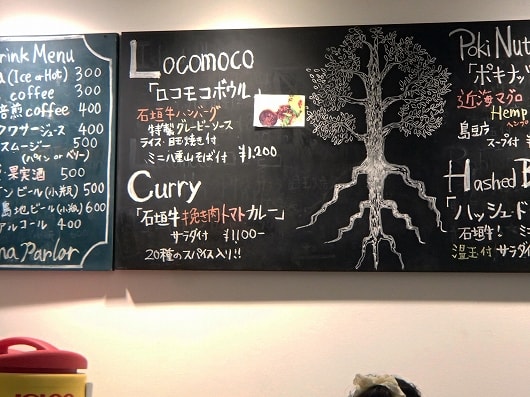 Drink Menu
(Ice or Hot) 300
coffee 300
焙煎coffee 400
クワサージュース 400
スムージー 500
(パイン or ベリー)
果実酒 500
ビール(小瓶) 500
島地ビール(小瓶) 600
アルコール 400
Parlor
Locomoco
「ロコモコボウル」
石垣牛ハンバーグ
特製グレービーソース
ライス・目玉焼き付
ミニ八重山そば付 ¥1,200
Curry
「石垣牛挽き肉トマトカレー」
サラダ付 ¥1,100-
20種のスパイス入り!!
Poki Nut
「ポキナッ
近海マグロ
Hemp
ヘンプ
島豆腐
スープ付
Hashed B
「ハッシュド
石垣牛! ミニ
温玉付 サラダ
IGLOO